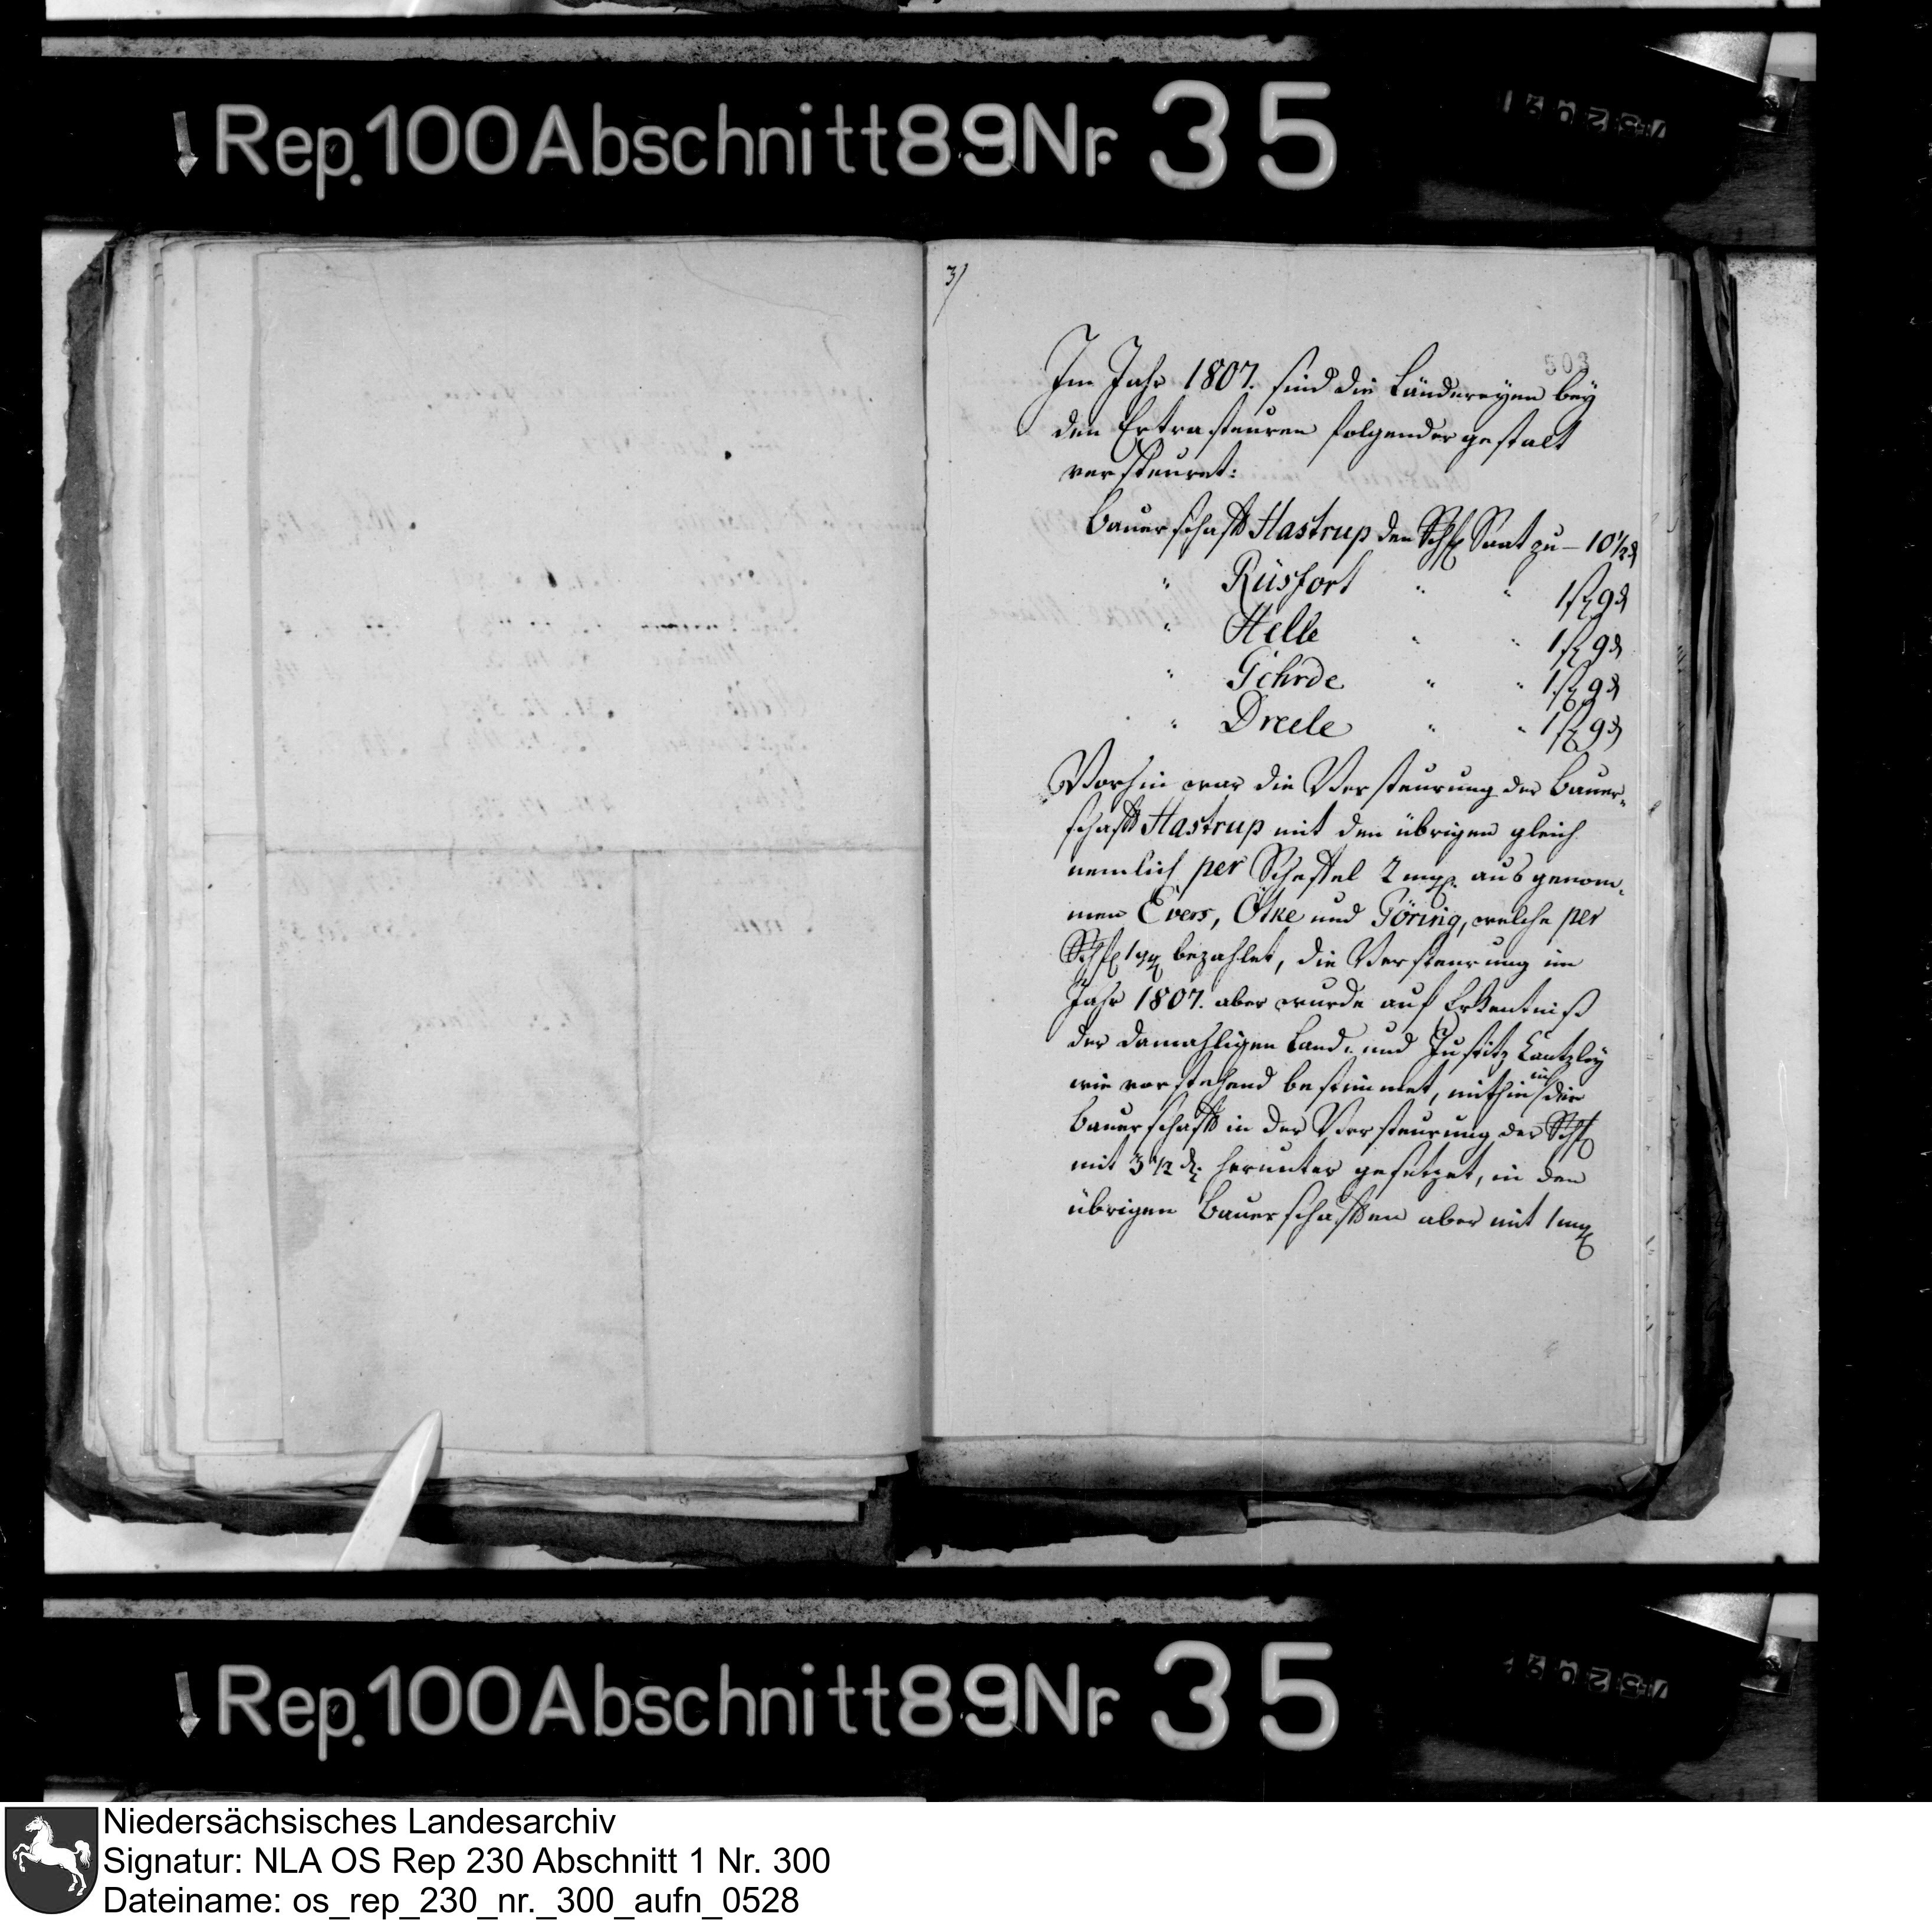 Rep. 100 Abschnitt 89 Nr. 35
3)
503
Im Jahr 1807. sind die Ländereyen bey
den Extrasteuren folgender gestalt
versteuret:
Bauerschafft Hastrup den Schfl Saat zu – 10 1/2 d
" Rüsfort " " 1 ß 9 d
" Helle " " 1 ß 9 d
" Gehrde " " 1 ß 9 d
" Dreele " " 1 ß 9 d
Vorhin war die Versteurung der Bauer-
schafft Hastrup mit den übrigen gleich
nemlich per Scheffel 2 mg. ausgenom-
men Evers, Otke und Göring, welche per
Schfl 1 gg bezahlet, die Versteurung im
Jahr 1807. aber wurde auf Erkentniß
der damahligen Land- und Justitz Cantzley
wie vorstehend bestimmet, mithin in der
Bauerschafft in der Versteurung der Schfl
mit 3 1/2 d. herunter gesetzet, in den
übrigen Bauerschafften aber mit 1 mg
Rep. 100 Abschnitt 89 Nr. 35
Niedersächsisches Landesarchiv
Signatur: NLA OS Rep 230 Abschnitt 1 Nr. 300
Dateiname: os_rep_230_nr._300_aufn_0528